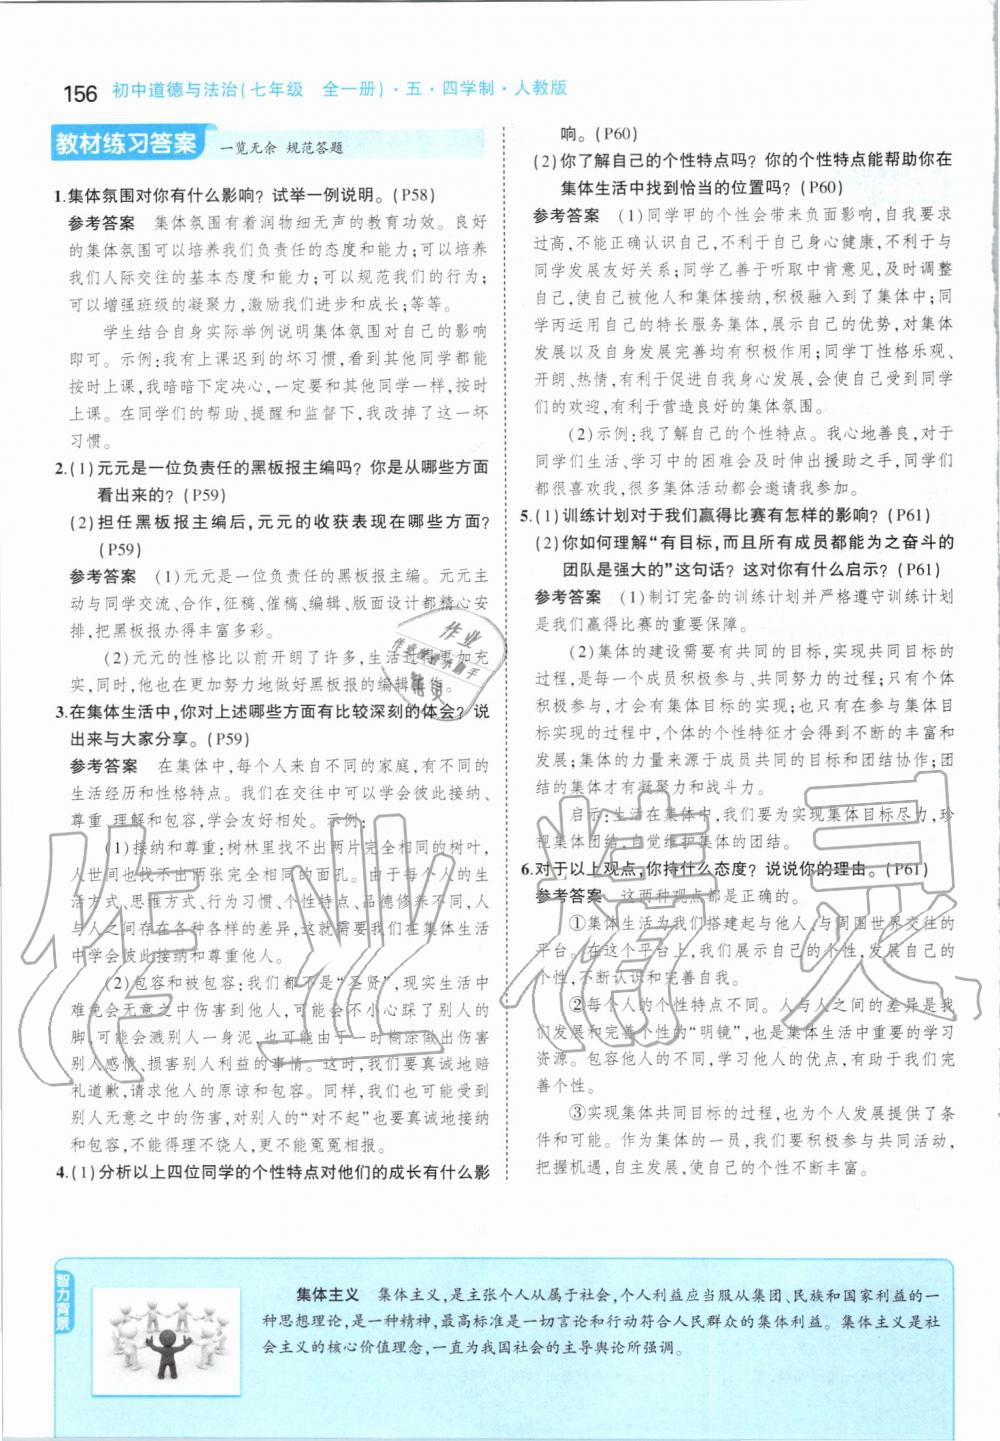 156 初中道德与法治(七年级　全一册)·五·四学制·人教版
教材练习答案 一览无余 规范答题
1.集体氛围对你有什么影响？试举一例说明。(P58)
参考答案　集体氛围有着润物细无声的教育功效。良好
的集体氛围可以培养我们负责任的态度和能力;可以培养
我们人际交往的基本态度和能力;可以规范我们的行为;
可以增强班级的凝聚力,激励我们进步和成长;等等。
学生结合自身实际举例说明集体氛围对自己的影响
即可。示例:我有上课迟到的坏习惯,看到其他同学都能
按时上课,我暗暗下定决心,一定要和其他同学一样,按时
上课。在同学们的帮助、提醒和监督下,我改掉了这一坏
习惯。
2.(1)元元是一位负责任的黑板报主编吗？你是从哪些方面
看出来的？(P59)
(2)担任黑板报主编后,元元的收获表现在哪些方面？
(P59)
参考答案　(1)元元是一位负责任的黑板报主编。元元主
动与同学交流、合作,征稿、催稿、编辑、版面设计都精心安
排,把黑板报办得丰富多彩。
(2)元元的性格比以前开朗了许多,生活过得更加充
实,同时,他也在更加努力地做好黑板报的编辑工作。
3.在集体生活中,你对上述哪些方面有比较深刻的体会？说
出来与大家分享。(P59)
参考答案　在集体中,每个人来自不同的家庭,有不同的
生活经历和性格特点。我们在交往中可以学会彼此接纳、
尊重、理解和包容,学会友好相处。示例:
(1)接纳和尊重:树林里找不出两片完全相同的树叶,
人世间也找不出两张完全相同的面孔。由于每个人的生
活方式、思维方式、行为习惯、个性特点、品德修养不同,人
与人之间存在各种各样的差异,这就需要我们在集体生活
中学会彼此接纳和尊重他人。
(2)包容和被包容:我们都不是“圣贤”,现实生活中
难免会无意之中伤害到他人,可能会不小心踩了别人的
脚,可能会溅别人一身泥,也可能由于一时糊涂做出伤害
别人感情、损害别人利益的事情。这时,我们就要真诚地赔
礼道歉,请求他人的原谅和包容。同样,我们也可能受到
别人无意之中的伤害,对别人的“对不起”也要真诚地接纳
和包容,不能得理不饶人,更不能冤冤相报。
4.(1)分析以上四位同学的个性特点对他们的成长有什么影
响。(P60)
(2)你了解自己的个性特点吗？你的个性特点能帮助你在
集体生活中找到恰当的位置吗？(P60)
参考答案　(1)同学甲的个性会带来负面影响,自我要求
过高,不能正确认识自己,不利于自己身心健康,不利于与
同学发展友好关系;同学乙善于听取中肯意见,及时调整
自己,使自己被他人和集体接纳,积极融入到了集体中;同
学丙运用自己的特长服务集体,展示自己的优势,对集体
发展以及自身发展完善均有积极作用;同学丁性格乐观、
开朗、热情,有利于促进自我身心发展,会使自己受到同学
们的欢迎,有利于营造良好的集体氛围。
(2)示例:我了解自己的个性特点。我心地善良,对于
同学们生活、学习中的困难会及时伸出援助之手,同学们
都很喜欢我,很多集体活动都会邀请我参加。
5.(1)训练计划对于我们赢得比赛有怎样的影响？(P61)
(2)你如何理解“有目标,而且所有成员都能为之奋斗的
团队是强大的”这句话？这对你有什么启示？(P61)
参考答案　(1)制订完备的训练计划并严格遵守训练计划
是我们赢得比赛的重要保障。
(2)集体的建设需要有共同的目标,实现共同目标的
过程,是每一个成员积极参与、共同努力的过程;只有个体
积极参与,才会有集体目标的实现;也只有在参与集体目
标实现的过程中,个体的个性特征才会得到不断的丰富和
发展;集体的力量来源于成员共同的目标和团结协作;团
结的集体才有凝聚力和战斗力。
启示:生活在集体中,我们要为实现集体目标尽力,珍
视集体团结,自觉维护集体的团结。
6.对于以上观点,你持什么态度？说说你的理由。(P61)
参考答案　这两种观点都是正确的。
①集体生活为我们搭建起与他人、与周围世界交往的
平台。在这个平台上,我们展示自己的个性,发展自己的
个性,不断认识和完善自我。
②每个人的个性特点不同。人与人之间的差异是我
们发展和完善个性的“明镜”,也是集体生活中重要的学习
资源。包容他人的不同,学习他人的优点,有助于我们完
善个性。
③实现集体共同目标的过程,也为个人发展提供了条
件和可能。作为集体的一员,我们要积极参与共同活动,
把握机遇,自主发展,使自己的个性不断丰富。
智力背景
集体主义　集体主义,是主张个人从属于社会,个人利益应当服从集团、民族和国家利益的一
种思想理论,是一种精神,最高标准是一切言论和行动符合人民群众的集体利益。集体主义是社
会主义的核心价值理念,一直为我国社会的主导舆论所强调。
作业精灵